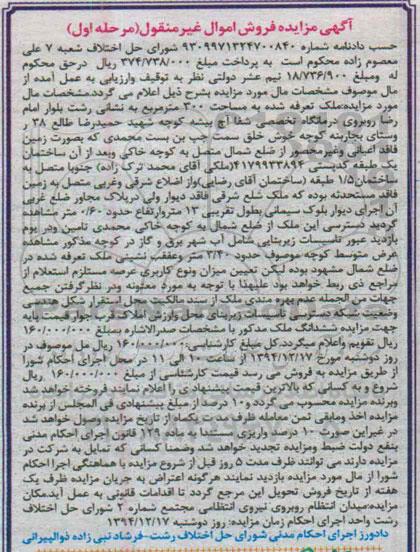 آگهی مزایده فروش اموال غیر منقول(مرحله اول)
حسب دادنامه شماره ۹۳۰۹۹۷۱۳۲۴۷۰۰۸۴۰ شورای حل اختلاف شعبه ۷ علی
معصوم زاده محکوم است به پرداخت مبلغ ۳۷۴/۷۳۸/۰۰۰ ریال درحق محکوم
له ومبلغ ۱۸/۷۳۶/۹۰۰ نیم عشر دولتی نظر به توقیف وارزیابی به عمل آمده از
مال موصوف مشخصات مال مورد مزایده بشرح ذیل اعلام می گردد:مشخصات مال
مورد مزایده:ملک تعرفه شده به مساحت ۳۰۰ مترمربع به نشانی رشت بلوار امام
رضا روبروی درمانگاه تخصصی شفا آج بیشه کوچه شهید حمیدرضا طالع ۳۸ ر
وستای بجاربنه کوچه خوش خلق سمت چپ بن بست محمدی که بصورت زمین
فاقد اعیانی وغیرمحصور از ضلع شمال متصل به کوچه خاکی وبعد از آن ساختمان
طبقه کدپستی ۴۱۷۹۹۳۳۸۹۴(ملکی آقای محمد ترک زاده) جنوبا متصل به
ساختمان۱/۵ طبقه (ساختمان آقای رضایی)واز اضلاع شرقی وغربی متصل به زمین
فاقد مستحدثه بوده که ملک ضلع شرقی فاقد دیوار ولی درپلاک مجاور ضلع غربی
آن اجرای دیوار بلوک سیمانی بطول تقریبی ۱۳ متروارتفاع حدود ۰/۶۰ متر مشاهده
گردید دسترسی این ملک از ضلع شمال به کوچه خاکی محمدی تامین ودر یوم
بازدید عبور تاسیسات زیربنایی شامل آب شهر برق و گاز در کوچه مذکور مشاهده
عرض متوسط کوچه موصوف حدود ۳/۴۰ متر وعقب نشینی ملک تعرفه شده در
ضلع شمال مشهود بوده لیکن تعیین میزان ونوع کاربری عرصه مستلزم استعلام از
مراجع ذی ربط خواهد بود علیهذا با توجه به موارد معنونه ودر نظرگرفتن جمیع
جهات من الجمله عدم بهره مندی ملک از سند مالکیت محل استقرار شکل هندسی
وضعیت شبکه دسترسی تاسیسات زیربنای محل وارزش املاک قرب جوار قیمت پایه
جهت مزایده ششدانگ ملک مذکور با مشخصات صدرالاشاره بمبلغ ۱۶۰/۰۰۰/۰۰۰
ریال تقویم واعلام میگردد.کل مبلغ کارشناسی: ۱۶۰/۰۰۰/۰۰۰ ریال مل موصوف در
روز دوشنبه مورخ ۱۳۹۴/۱۲/۱۷ از ساعت ۱۰ الی ۱۱ در محل اجرای احکام شورا
از طریق مزایده به فروش می رسد قیمت کارشناسی از مبلغ ۱۶۰/۰۰۰/۰۰۰ ریال
شروع و به کسانی که بالاترین قیمت پیشنهادی را اعلام نمایند فروخته خواهد شد
وبرنده مزایده محسوب می گردد۱۰ درصد از مبلغ پیشنهادی فی المجلس از برنده
مزایده اخذ ومابقی ثمن معامله ظرف مدت یکماه از تاریخ مزایده وصول خواهد شد
در غیراین صورت ۱۰ درصد واریزی مستندا به ماده ۱۲۹ قانون اجرای احکام مدنی
بنفع دولت ضبط ومزایده تجدید خواهد شد وضمنا کسانی که تمایل به شرکت در
مزایده دارند می توانند ظرف مدت ۵ روز قبل از شروع مزایده با هماهنگی اجرا احکام
شورا از مال مورد مزایده بازدید نمایند هرگونه اعتراض به جریان مزایده ظرف یک
هفته از تاریخ فروش تحویل این مرجع گردد تا اقدامات قانونی به عمل آید.مکان
مزایده:میدان انتظام روبروی نیروی انتظامی مجتمع شماره ۲ شورای حل اختلاف
رشت واحد اجرای احکام زمان مزایده: روز دوشنبه ۱۳۹۴/۱۲/۱۷
دادورز اجرای احکام مدنی شورای حل اختلاف رشت-فرشاد نبی زاده ذوالپیرانی